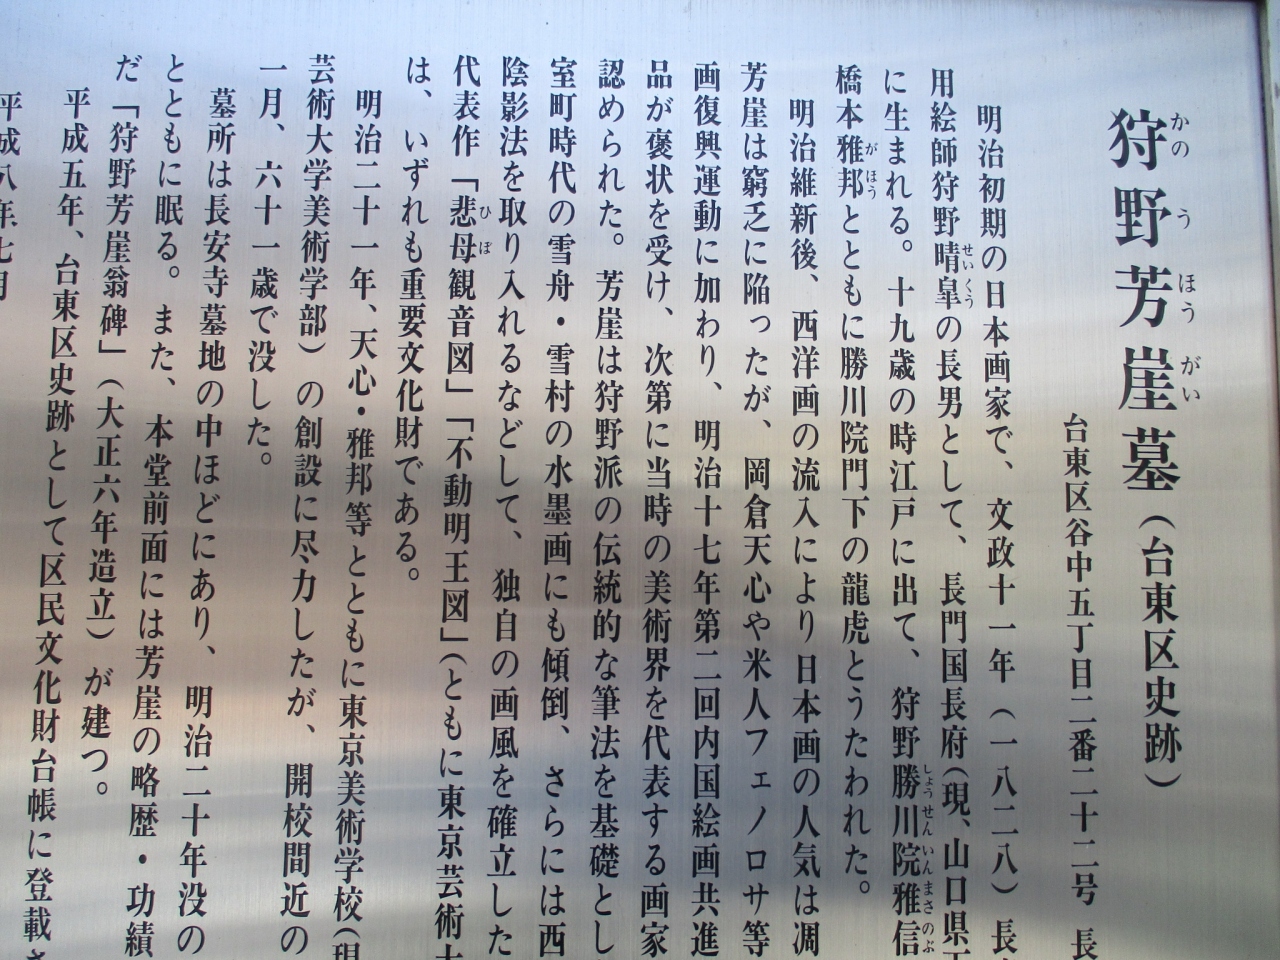 狩野芳崖墓（台東区史跡）
かのうほうがい
台東区谷中五丁目二番二十二号 長
明治初期の日本画家で、文政十一年（一八二八）長
用絵師狩野晴皐の長男として、長門国長府（現、山口県
せいくう
に生まれる。十九歳の時江戸に出て、狩野勝川院雅信
しょうせんいんまさのぶ
橋本雅邦とともに勝川院門下の龍虎とうたわれた。
がほう
明治維新後、西洋画の流入により日本画の人気は凋
芳崖は窮乏に陥ったが、岡倉天心や米人フェノロサ等
画復興運動に加わり、明治十七年第二回内国絵画共進
品が褒状を受け、次第に当時の美術界を代表する画家
認められた。芳崖は狩野派の伝統的な筆法を基礎とし
室町時代の雪舟・雪村の水墨画にも傾倒、さらには西
陰影法を取り入れるなどして、独自の画風を確立した
代表作「悲母観音図」「不動明王図」（ともに東京芸術
ひぼ
は、いずれも重要文化財である。
明治二十一年、天心・雅邦等とともに東京美術学校（現
芸術大学美術学部）の創設に尽力したが、開校間近の
一月、六十一歳で没した。
墓所は長安寺墓地の中ほどにあり、明治二十年没の
とともに眠る。また、本堂前面には芳崖の略歴・功績
だ「狩野芳崖翁碑」（大正六年造立）が建つ。
平成五年、台東区史跡として区民文化財台帳に登載
平成八年七月